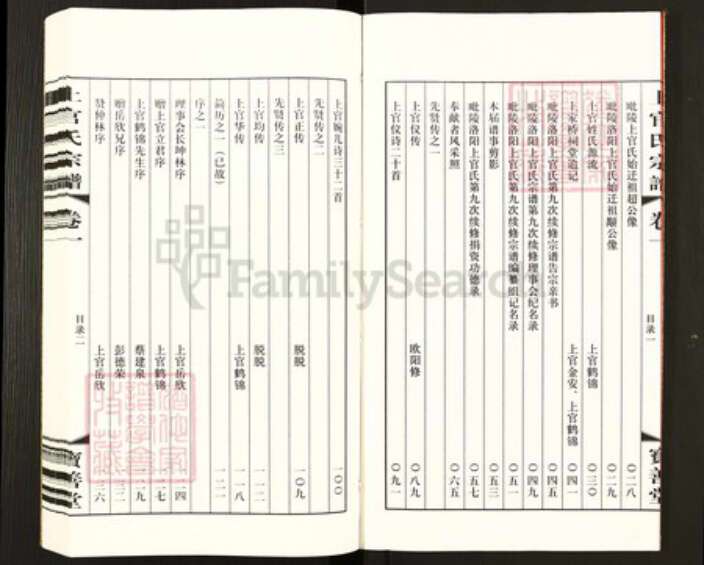 上官氏宗譜 卷一 目录一 寶善堂
毗陵上官氏始迁祖超公像 〇二八
毗陵上官氏始迁祖顺公像 〇二九
上官姓氏源流 上官鹤锦 〇三〇
上家桥祠堂追记 上官金安、上官鹤锦 〇四一
毗陵洛阳上官氏第九次续修宗谱告宗亲书 〇四五
毗陵洛阳上官氏宗谱第九次续修理事会纪名录 〇四九
毗陵洛阳上官氏第九次续修宗谱编纂组记名录 〇五一
本届谱事剪影 〇五五
毗陵洛阳上官氏第九次续修捐资功德录 〇五七
奉献者风采照 〇六五
先贤传之一
上官仪传 欧阳修 〇八九
上官仪诗二十首 〇九一
上官婉儿诗三十二首 一〇〇
先贤传之二
上官正传 脱脱 一〇九
先贤传之三
上官均传 脱脱 一一二
上官华传 上官鹤锦 一一八
简历之一（已故） 一二一
序之一
理事会长坤林序 上官岳欣 一二四
赠上官立君序 上官鹤锦 一二七
上官鹤锦先生序 蔡建泉 一二九
赠岳欣兄序 彭德荣 一三二
贤仲林序 上官岳欣 一三六
上官氏宗譜 卷一 目录二 寶善堂
FamilySearch